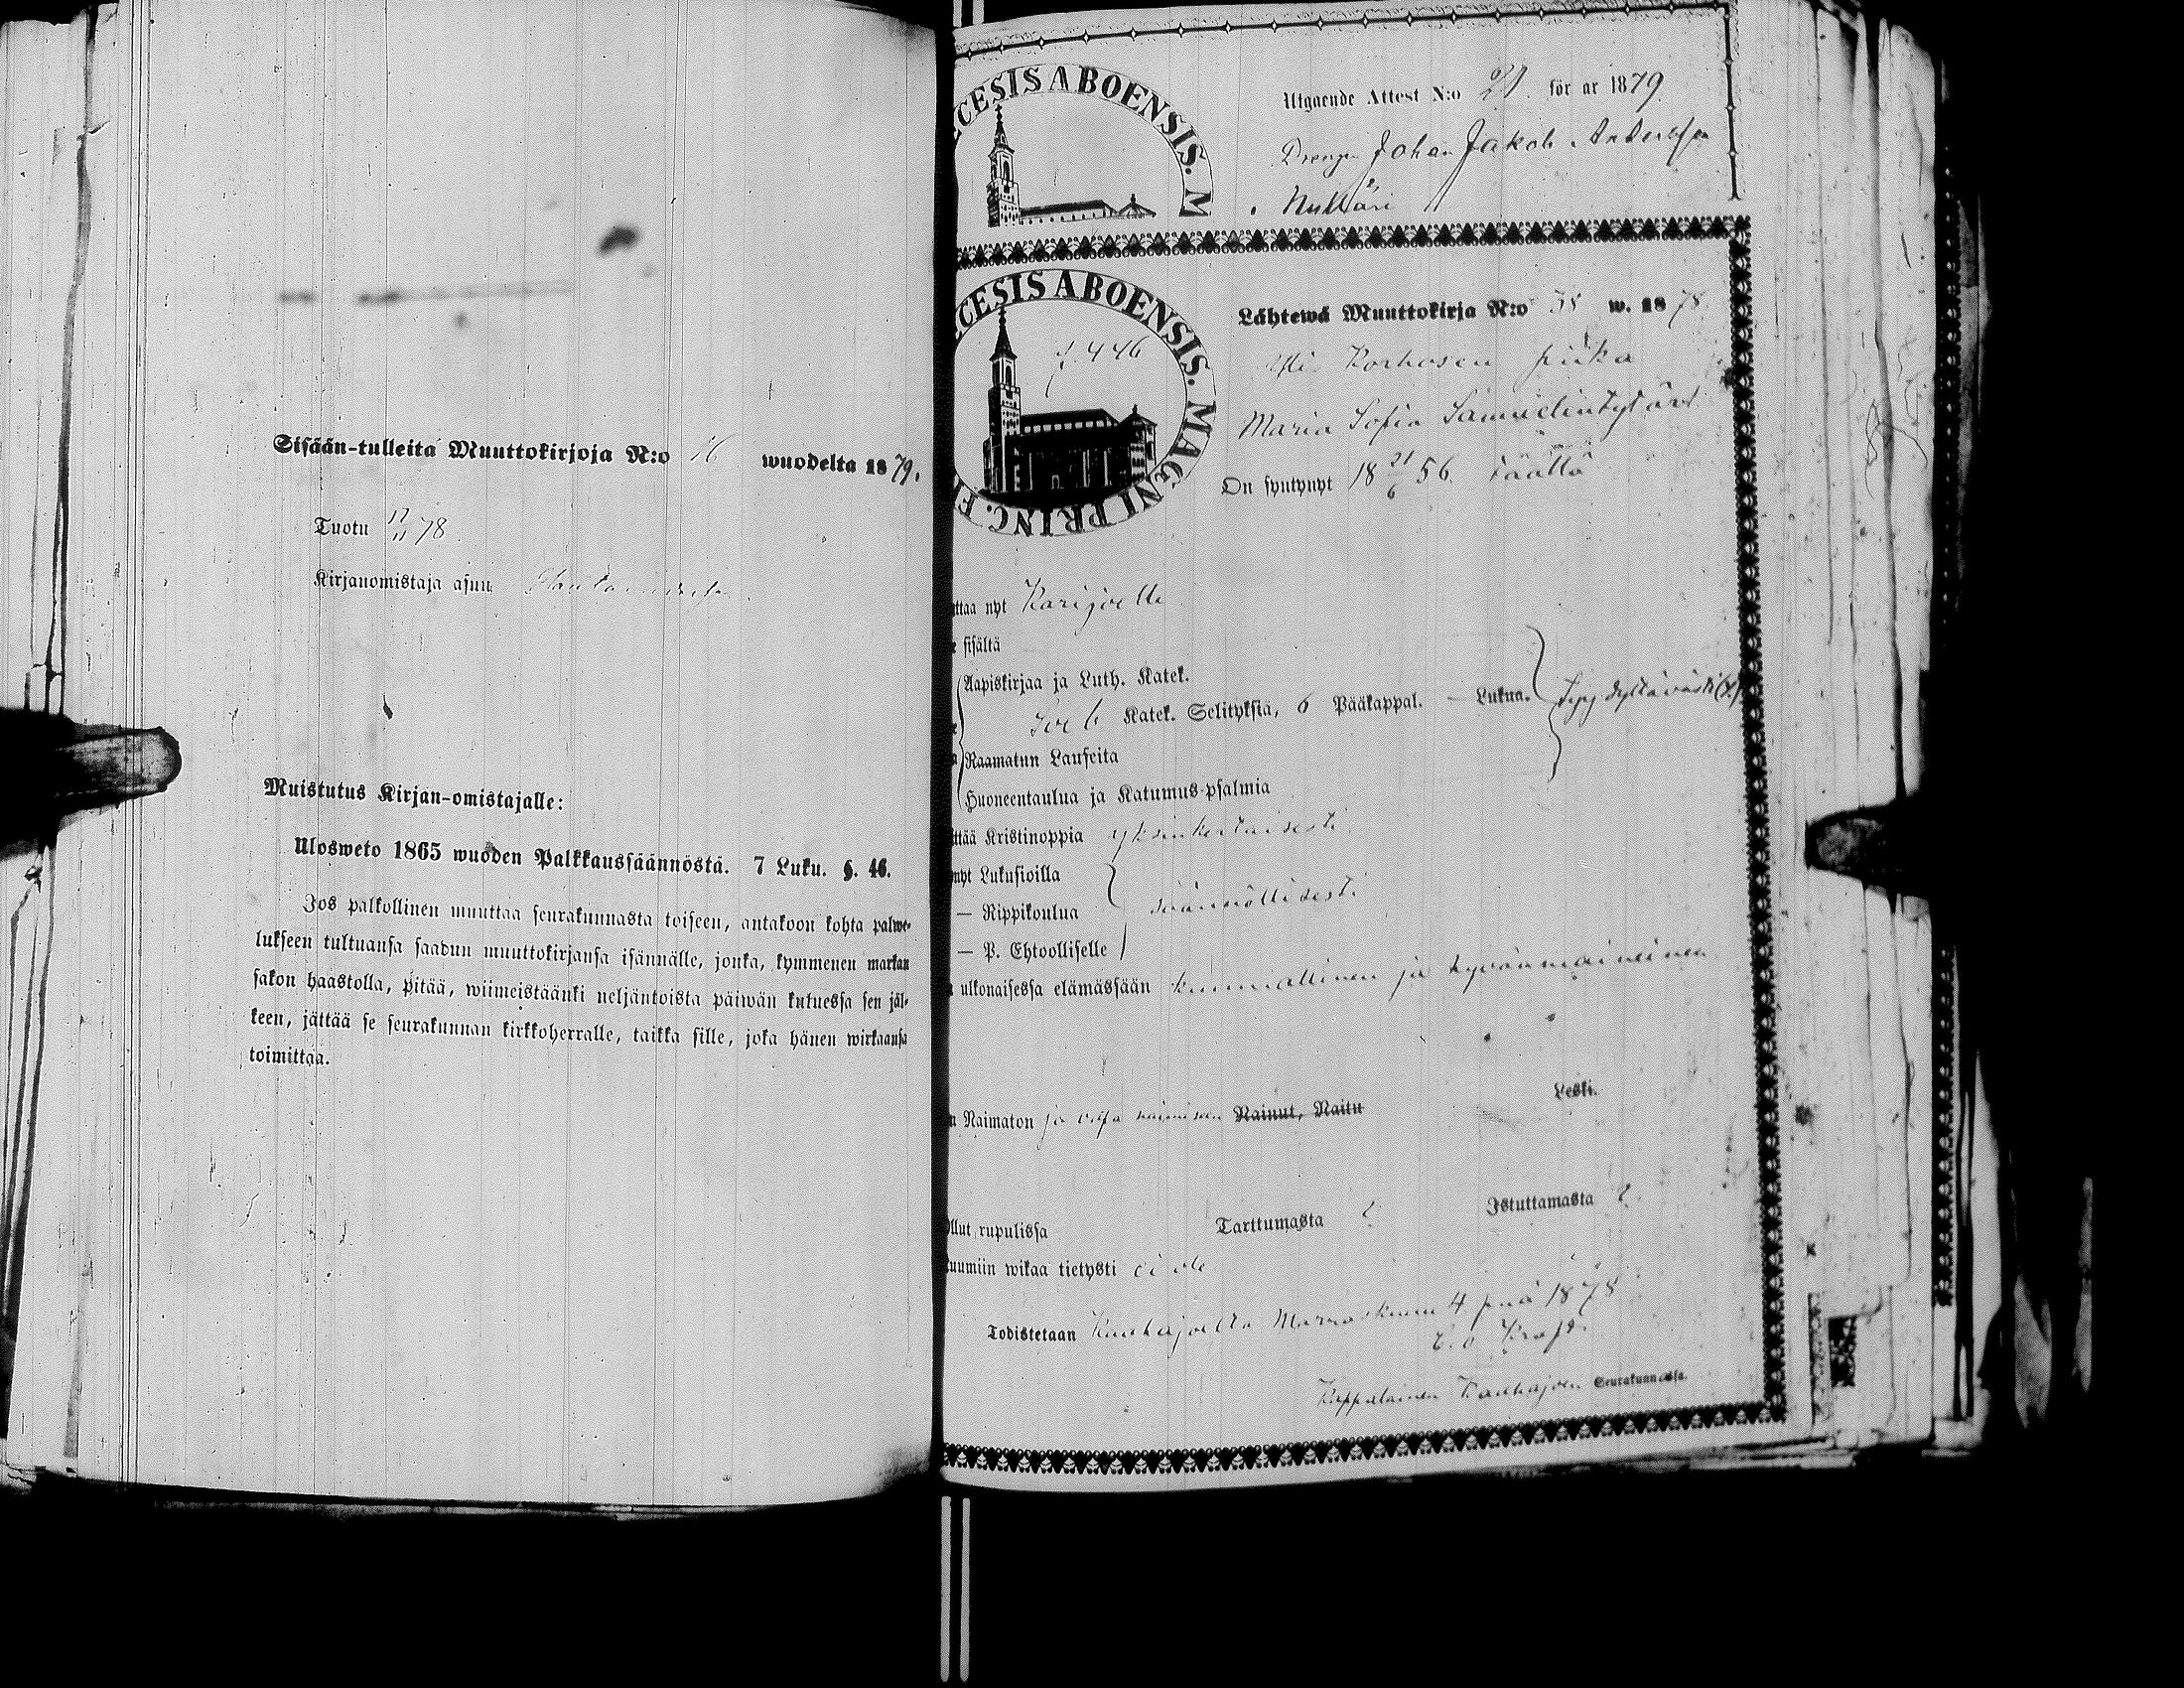 Sisään-tulleita Muuttokirjoja N:o 16 wuodelta 1879.
Tuotu 17/11 78.
Kirjanomistaja asuu
Muistutus Kirjan-omistajalle:
Ulosweto 1865 wuoden Palkkaussäännöstä. 7 Luku. §. 46.
Jos palkollinen muuttaa seurakunnasta toiseen, antakoon kohta palwe-
lukseen tultuansa saadun muuttokirjansa isännälle, jonka, kymmenen markan
sakon haastolla, pitää, wiimeistäänki neljäntoista päiwän kuluessa sen jäl-
keen, jättää se seurakunnan kirkkoherralle, taikka sille, joka hänen wirkaansa
toimittaa.
CESIS ABOENSIS. M
Utgaende Attest N:o 21. för ar 1879.
Drengen Johan Jakob Andersson
CESIS ABOENSIS. MAGNI PRINC. F
Lähtewä Muuttokirja N:o 38 w. 1878
f. 446
Yli Korhosen piika
Maria Sofia Samuelintytär
On syntynyt 18 21/6 56. täällä
ttaa nyt Karijoelle
e sisältä
Aapiskirjaa ja Luth. Katek.
Katek. Selityksiä, 6 Pääkappal. — Lukua.
Raamatun Lauseita
Huoneentaulua ja Katumus-psalmia
ttää Kristinoppia yksinkertaisesti
nyt Lukusioilla
— Rippikoulua säännöllisesti
— P. Ehtoolliselle
ulkonaisessa elämässään kunniallinen ja hyvänmaineinen
n Naimaton ja vapa naimiseen Nainut, Naitu Leski.
llut rupulissa Tarttumasta Istuttamasta
uumiin wikaa tietysti ei ole
Todistetaan Kauhajoella Marraskuun 4 pnä 1878
Kappalainen Kauhajoen Seurakunnassa.